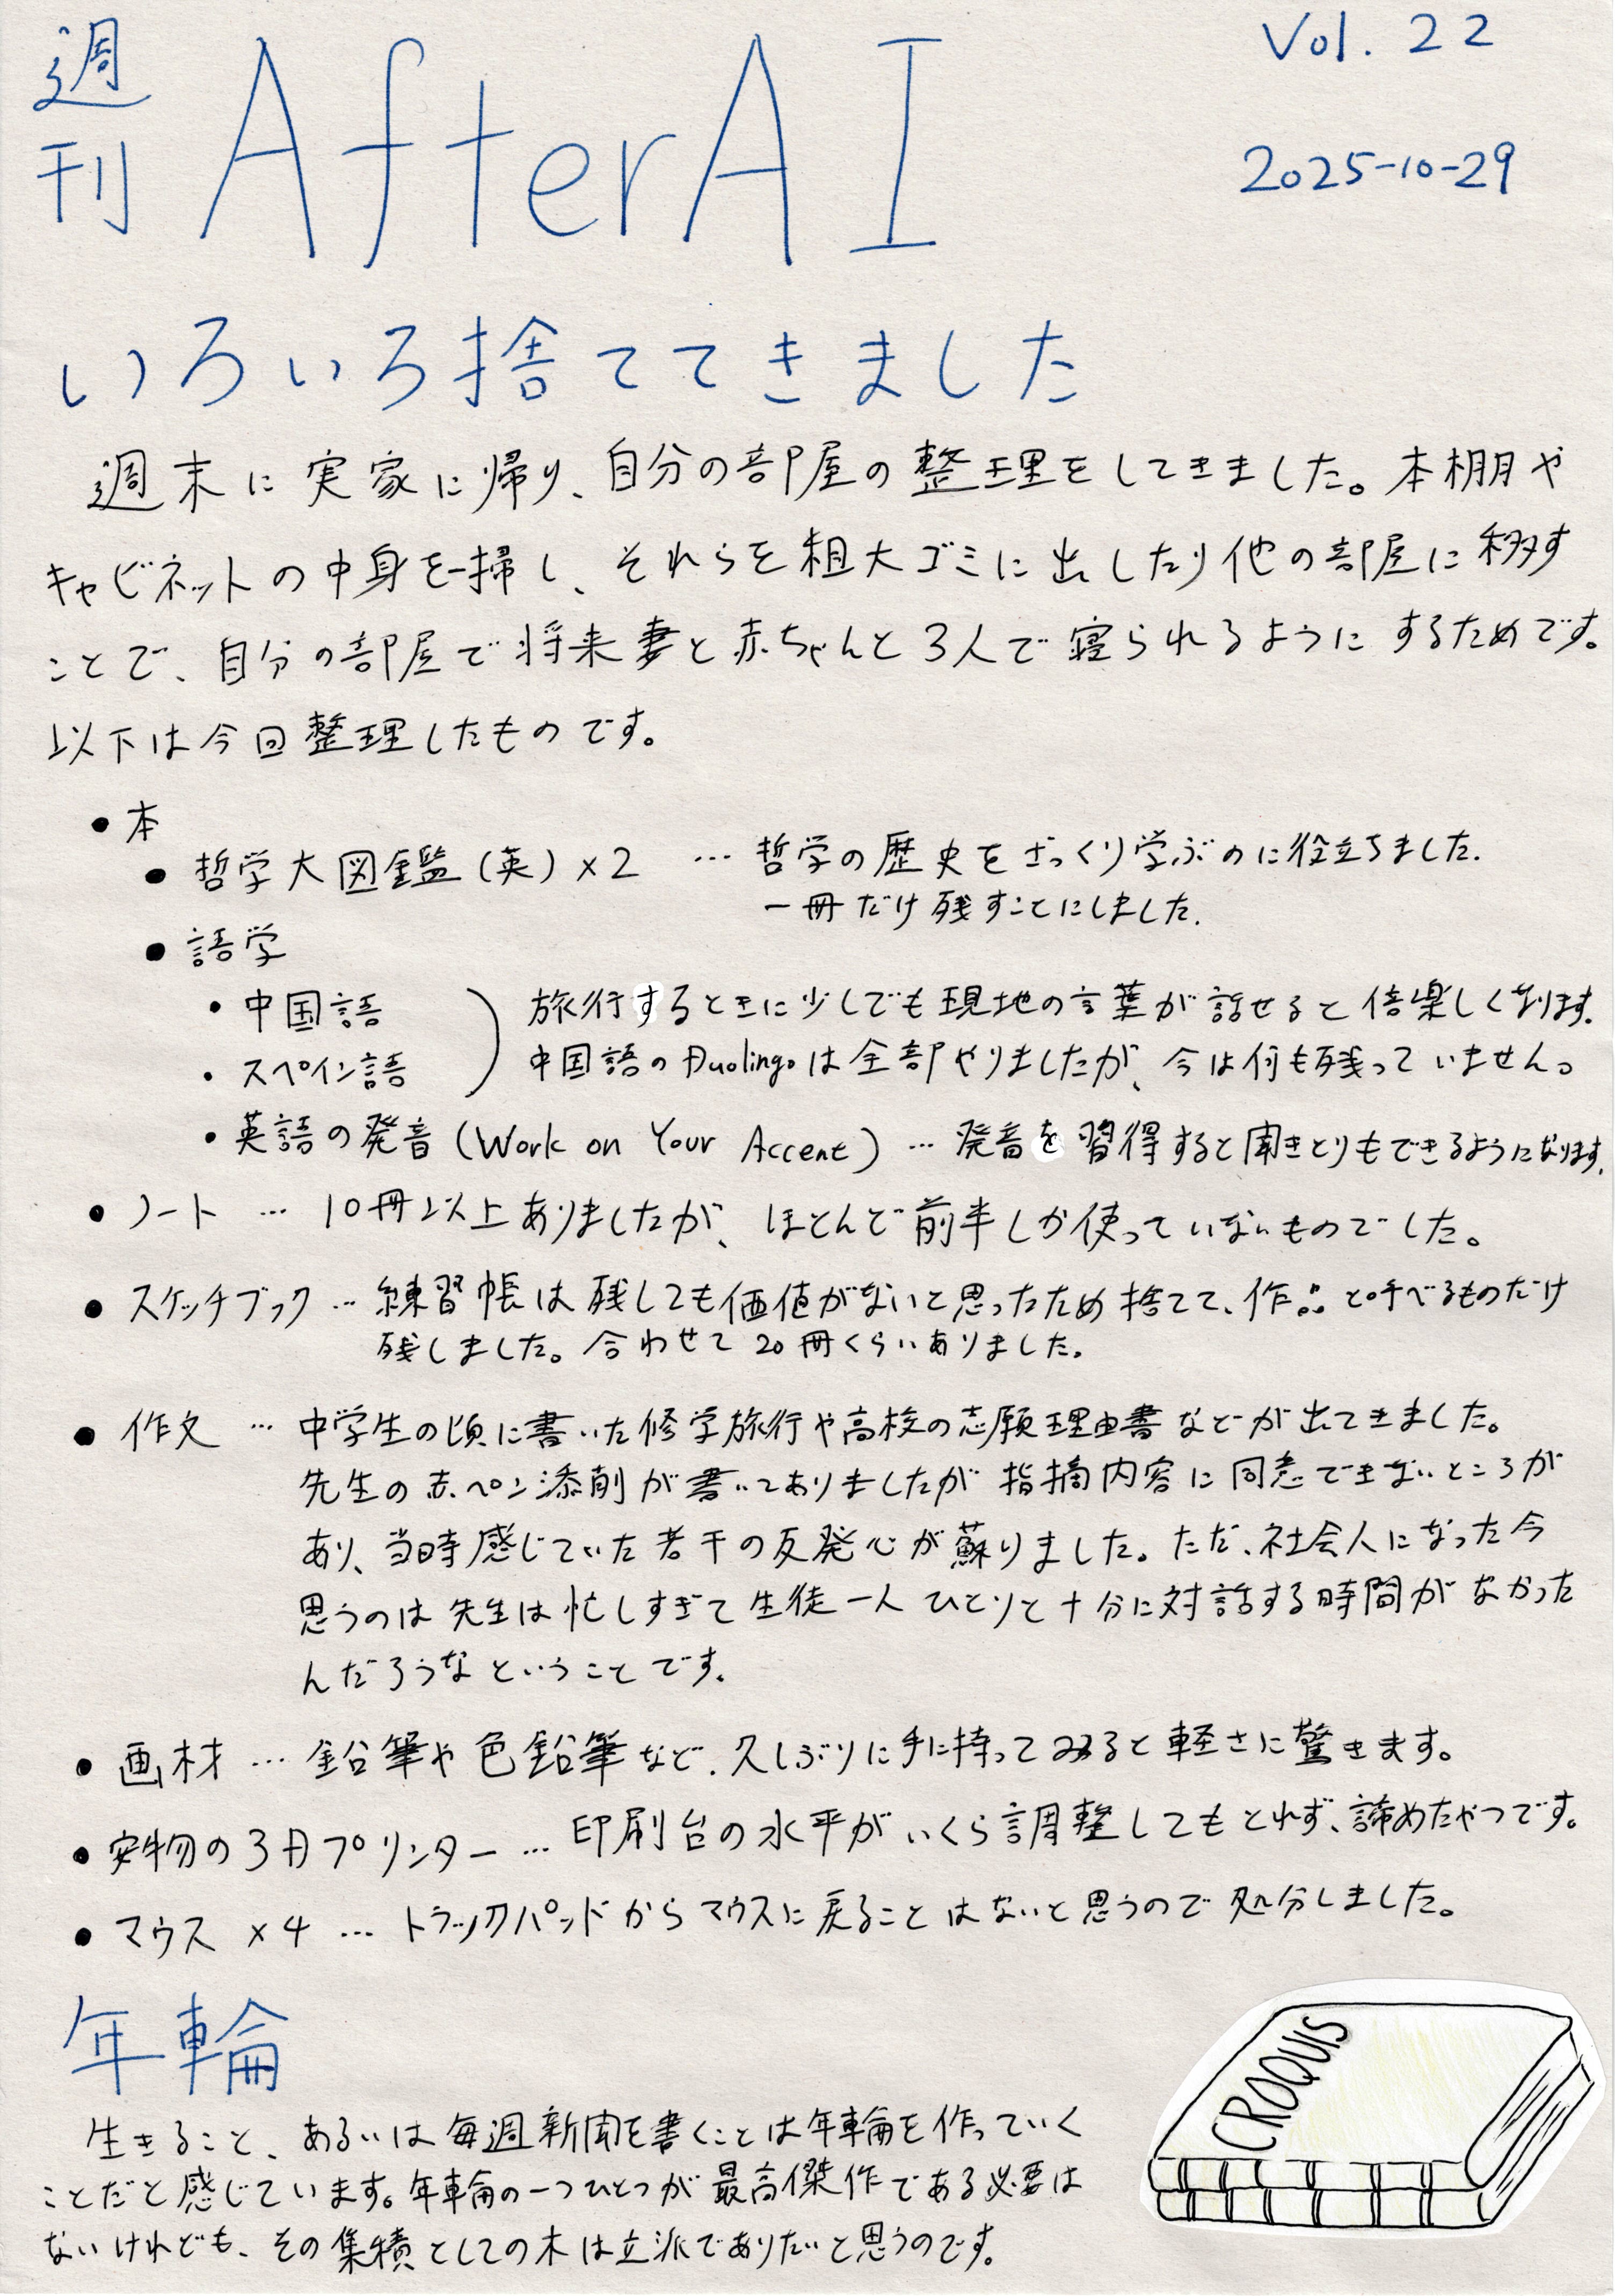 週刊 AfterAI
Vol. 22
2025-10-29
いろいろ捨ててきました
週末に実家に帰り、自分の部屋の整理をしてきました。本棚や
キャビネットの中身を一掃し、それらを粗大ゴミに出したり他の部屋に移す
ことで、自分の部屋で将来妻と赤ちゃんと3人で寝られるようにするためです。
以下は今回整理したものです。
• 本
• 哲学大図鑑(英)×2 … 哲学の歴史をざっくり学ぶのに役立ちました.
一冊だけ残すことにしました.
• 語学
• 中国語
• スペイン語
旅行するときに少しでも現地の言葉が話せると倍楽しくなります.
中国語のDuolingoは全部やりましたが、今は何も残っていません。
• 英語の発音(Work on Your Accent) … 発音を習得すると聞きとりもできるようになります.
• ノート … 10冊以上ありましたが、ほとんど前半しか使っていないものでした。
• スケッチブック … 練習帳は残しても価値がないと思ったため捨てて、作品と呼べるものだけ
残しました。合わせて20冊くらいありました.
• 作文 … 中学生の頃に書いた修学旅行や高校の志願理由書などが出てきました。
先生の赤ペン添削が書いてありましたが指摘内容に同意できないところが
あり、当時感じていた若干の反発心が蘇りました。ただ、社会人になった今
思うのは先生は忙しすぎて生徒一人ひとりと十分に対話する時間がなかった
んだろうなということです.
• 画材 … 鉛筆や色鉛筆など、久しぶりに手に持ってみると軽さに驚きます。
• 安物の3Dプリンター … 印刷台の水平がいくら調整してもとれず、諦めたやつです。
• マウス ×4 … トラックパッドからマウスに戻ることはないと思うので処分しました。
年輪
生きること、あるいは毎週新聞を書くことは年輪を作っていく
ことだと感じています。年輪の一つひとつが最高傑作である必要は
ないけれども、その集積としての木は立派でありたいと思うのです。
CROQUIS